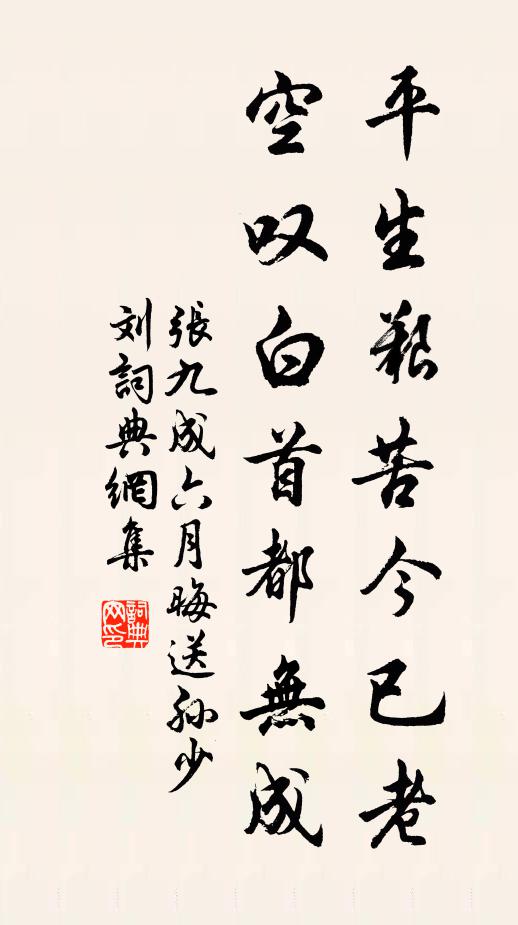 平生艱苦今已老
空叹白首都無成
張九成六月晦送孙少
刘詞典網集
詞典网印